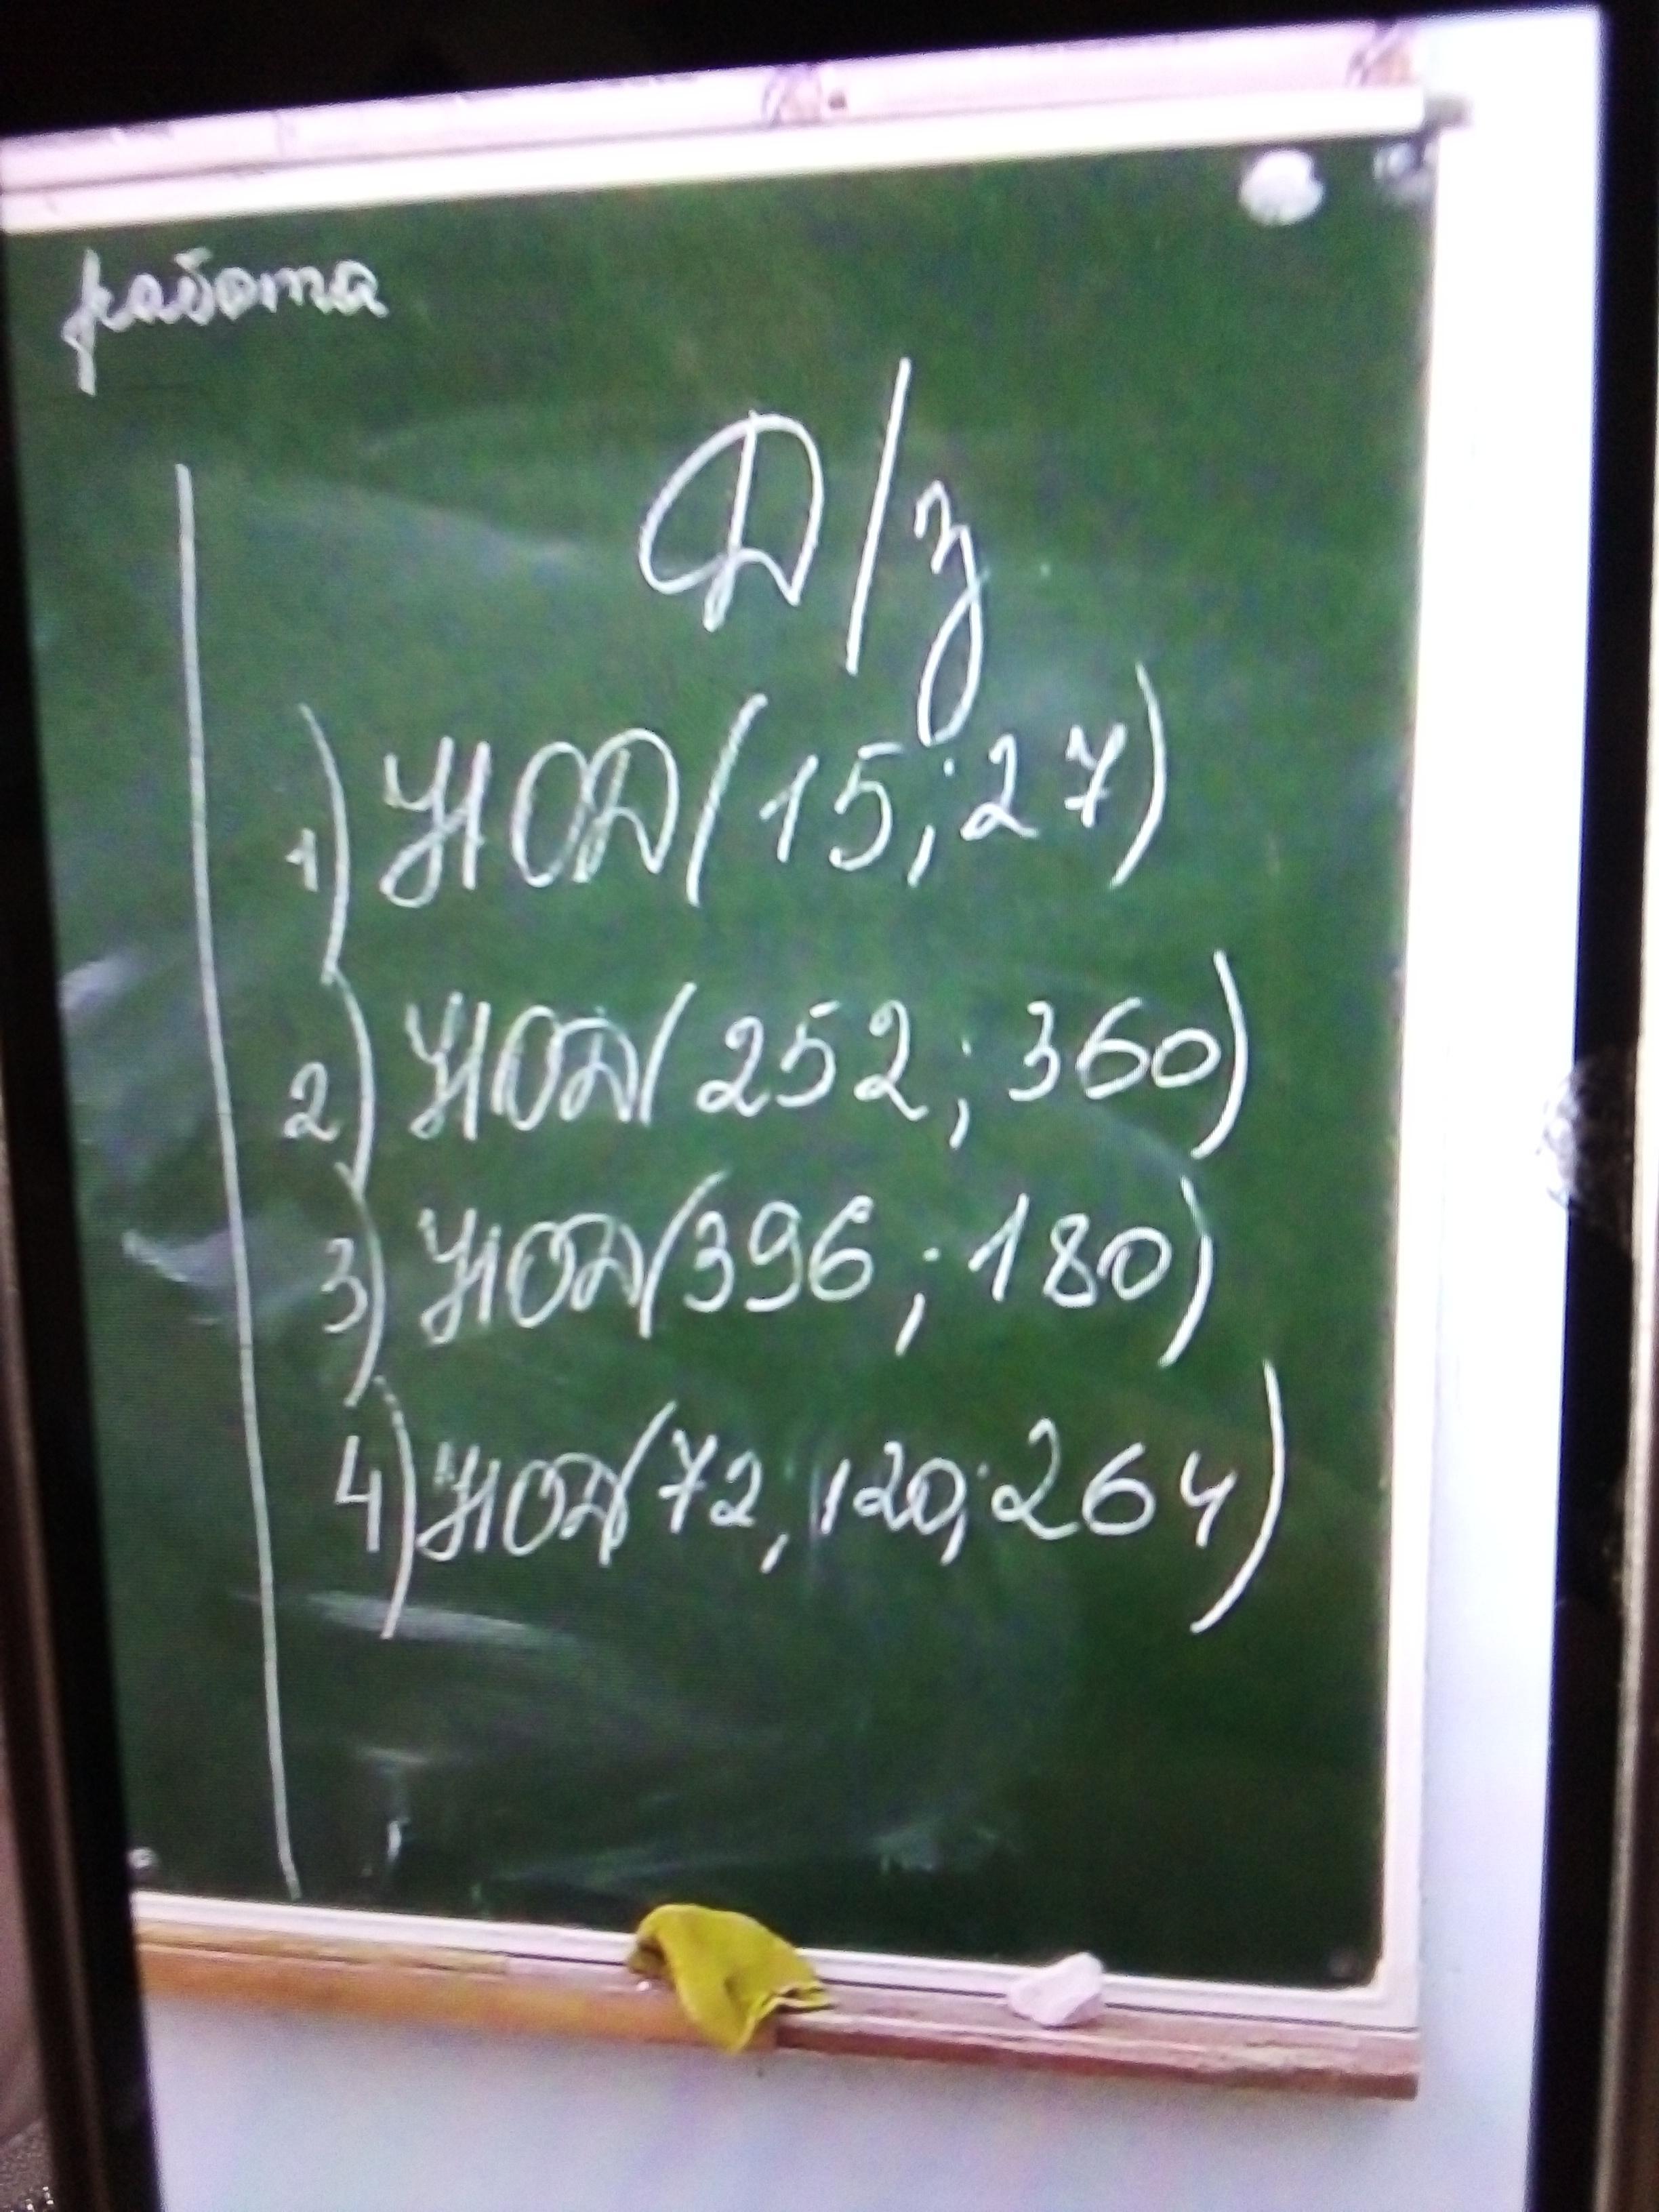 работа
Д/з
1) НОД(15;27)
2) НОД(252;360)
3) НОД(396;180)
4) НОД(72,120;264)